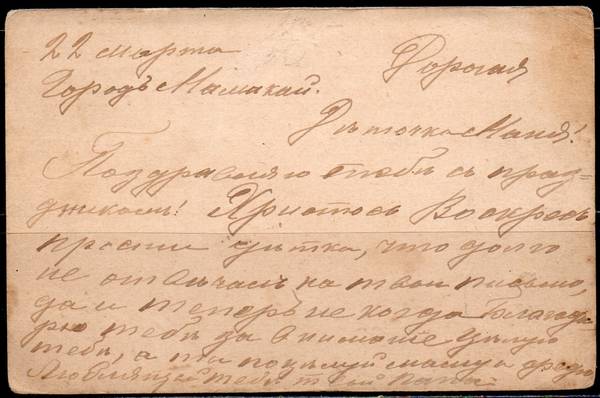 22 марта
Городъ Мамакай.
Дорогая
Дѣточка Маня!
Поздравляю тебя съ праз-
дникомъ! Христосъ Воскресъ
прости дѣтка, что долго
не отвѣчалъ на твои письмо,
да и теперь не когда Благода-
рю тебя за вниманіе Цѣлую
тебя, а ты поцѣлуй маму и
Любящій тебя твой папа